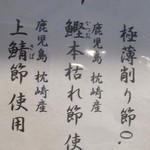 極薄削り節0.
鹿児島 枕崎産
鰹本枯れ節使
かつお
鹿児島 枕崎産
上鯖節使用
さば